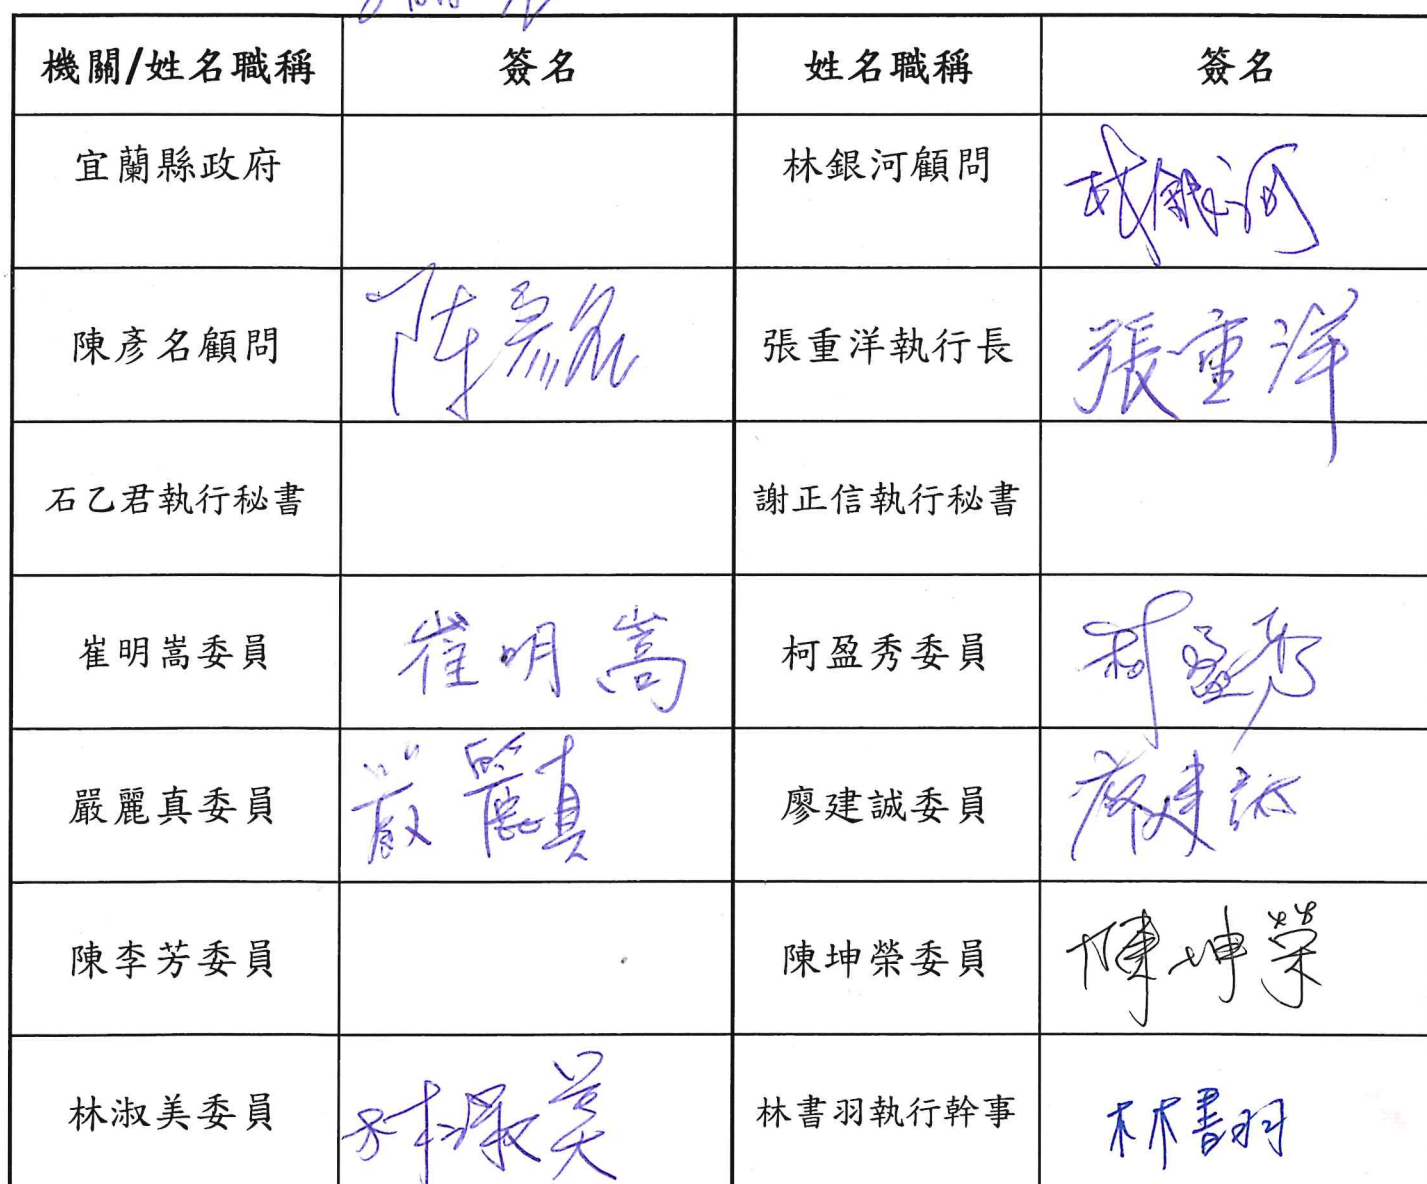 機關/姓名職稱 簽名 姓名職稱 簽名
宜蘭縣政府 林銀河顧問 林銀河
陳彥名顧問 陈彥名 張重洋執行長 張重洋
石乙君執行秘書 謝正信執行秘書
崔明嵩委員 崔明嵩 柯盈秀委員 柯盈秀
嚴麗真委員 嚴麗真 廖建誠委員 廖建誠
陳李芳委員 陳坤榮委員 陳坤榮
林淑美委員 林淑美 林書羽執行幹事 林書羽